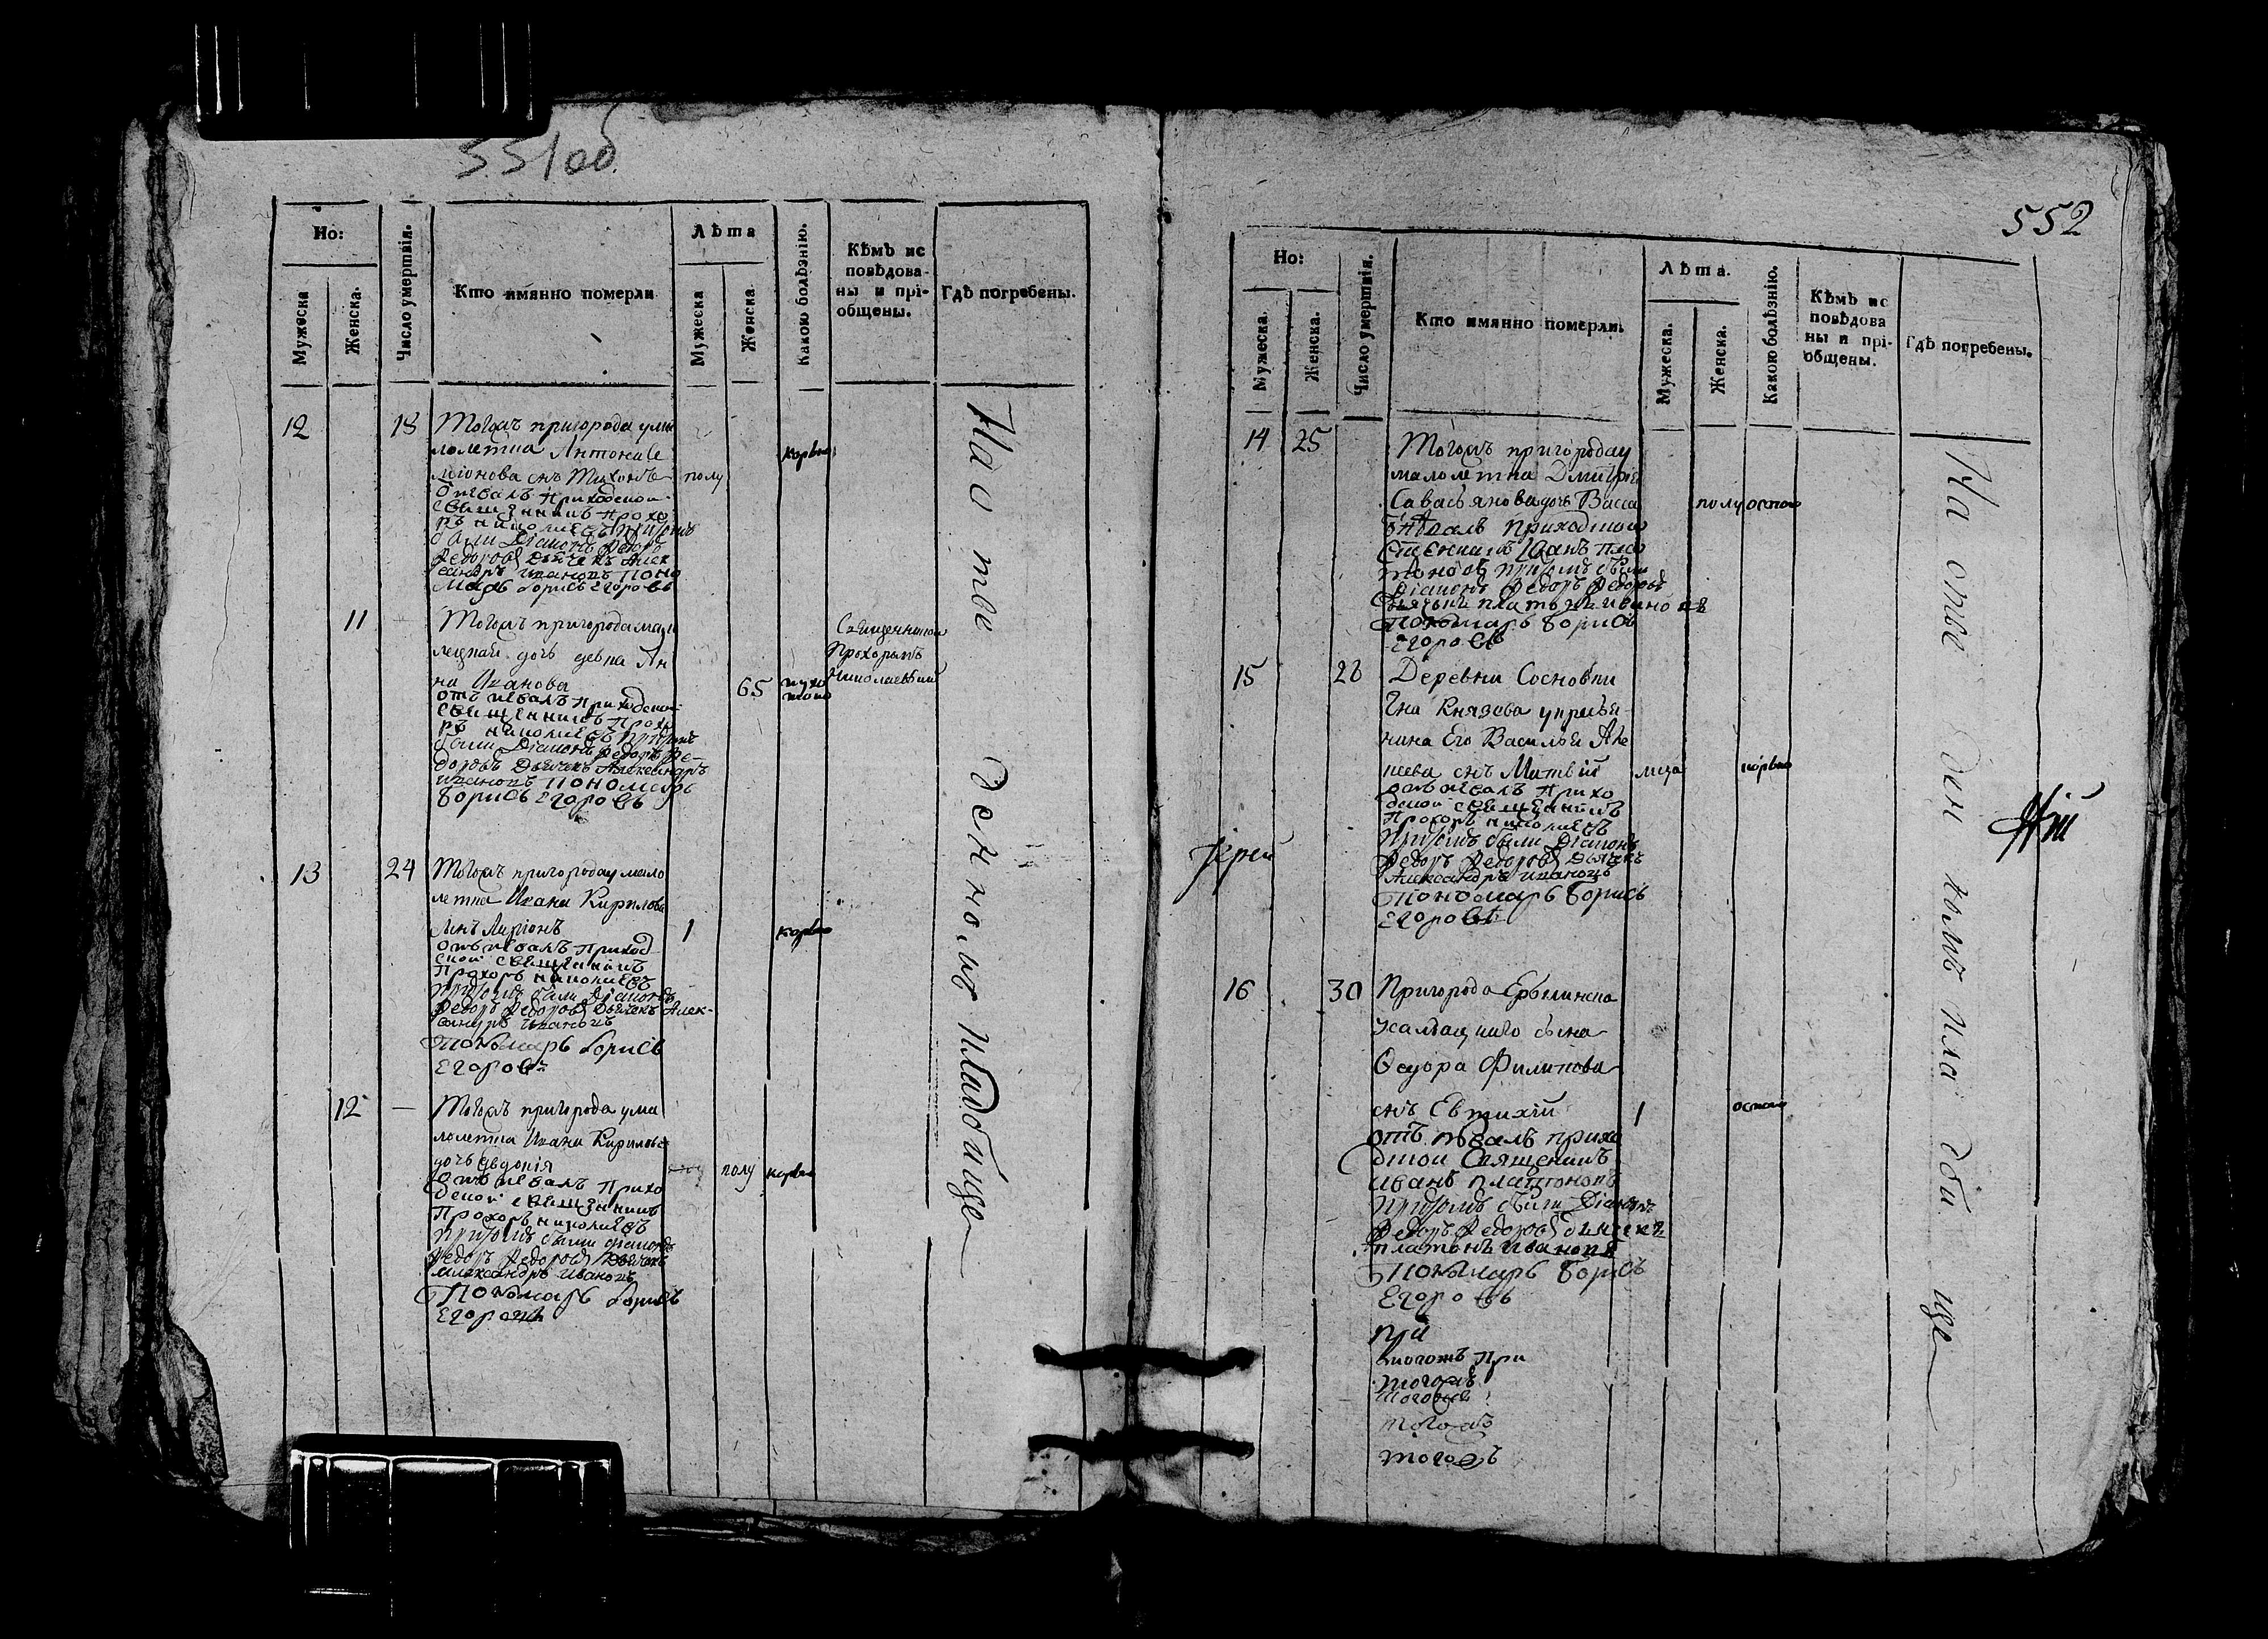 551об.
Но:
Мужеска
Женска.
Число умертвія.
Кто имянно померли
Лѣта
Мужеска
Женска.
Какою болѣзнію.
Кѣмъ ис
повѣдова-
ны и прі-
общены.
Гдѣ погребены.
12 18 Тогожъ пригорода ума
лолетна Антона Се
міонова снъ Тихонъ полу корью
отпевалъ Приходской
священникъ Прохо
ръ Николаевъ притомъ
были Діаконъ Федоръ
Федоровъ Дьячекъ Алек
сандръ Ивановъ Поно
марь Борисъ Егоровъ
11 Тогожъ пригорода
дочь девка Ан
на Иванова 65
отъпевалъ Приходской
священникъ Прохо
ръ Николаевъ притомъ
были Діаконъ Федоръ Фе-
доровъ Дьячекъ Александръ
Ивановъ Пономарь
Борисъ Егоровъ
Священником
Прохоромъ
Николаевым
13 24 Тогожъ пригорода у мало
летна Ивана Кирилова
снъ Ларіонъ 1 корью
отъпевалъ Приход
ской священникъ
Прохоръ Николаевъ
притомъ были Діаконъ
Федоръ Федоровъ Дьячекъ Алек-
сандръ Ивановъ
Пономарь Борисъ
Егоровъ
12 — Тогожъ пригорода ума
лолетна Ивана Кирилова
дочь Евдокія полу корью
отъпевалъ Прихо
дской священникъ
Прохоръ Николаевъ
притомъ были діаконъ
Федоръ Федоровъ Дьячекъ
Александръ Ивановъ
Пономарь Борисъ
Егоровъ
На отве денномъ кладбище
552
Но:
Мужеска.
Женска.
Число умертвія.
Кто имянно померли.
Лѣта.
Мужеска.
Женска.
Какою болѣзнію.
Кѣмъ ис
повѣдова
ны и прі-
общены.
Гдѣ погребены.
14 25 Тогожъ пригорода у
малолетна Дмитрія
Савасьянова дочь Васса полу оспою
отпѣвалъ Приходской
Сщенникъ Іванъ Пла
тоновъ притомъ были
Діаконъ Федоръ Федоровъ
Дьячекъ Платонъ Ивановъ
Пономарь Борисъ
Егоровъ
15 28 Деревни Сосновки
Гна Князева у кресья-
нина Его Василья Але
ксева снъ Матвій корью
отъпевалъ Прихо
дской священникъ
Прохоръ Николаевъ
притомъ были Діаконъ
Федоръ Федоровъ Дьячекъ
Александръ Ивановъ
Пономарь Борисъ
Егоровъ
Іерей
16 30 Пригорода Ерыклинска
у салдацкаго сына
Федора Филипова
снъ Евтихій 1 оспою
отъпѣвалъ прихо
дской Священникъ
Иванъ Платоновъ
притомъ были Діаконъ
Федоръ Федоровъ дьячекъ
Платонъ Ивановъ
Пономарь Борисъ
Егоровъ
При
тогожъ При
тогожъ
тогожъ
тогожъ
тогожъ
На отве ден номъ кла дби ще